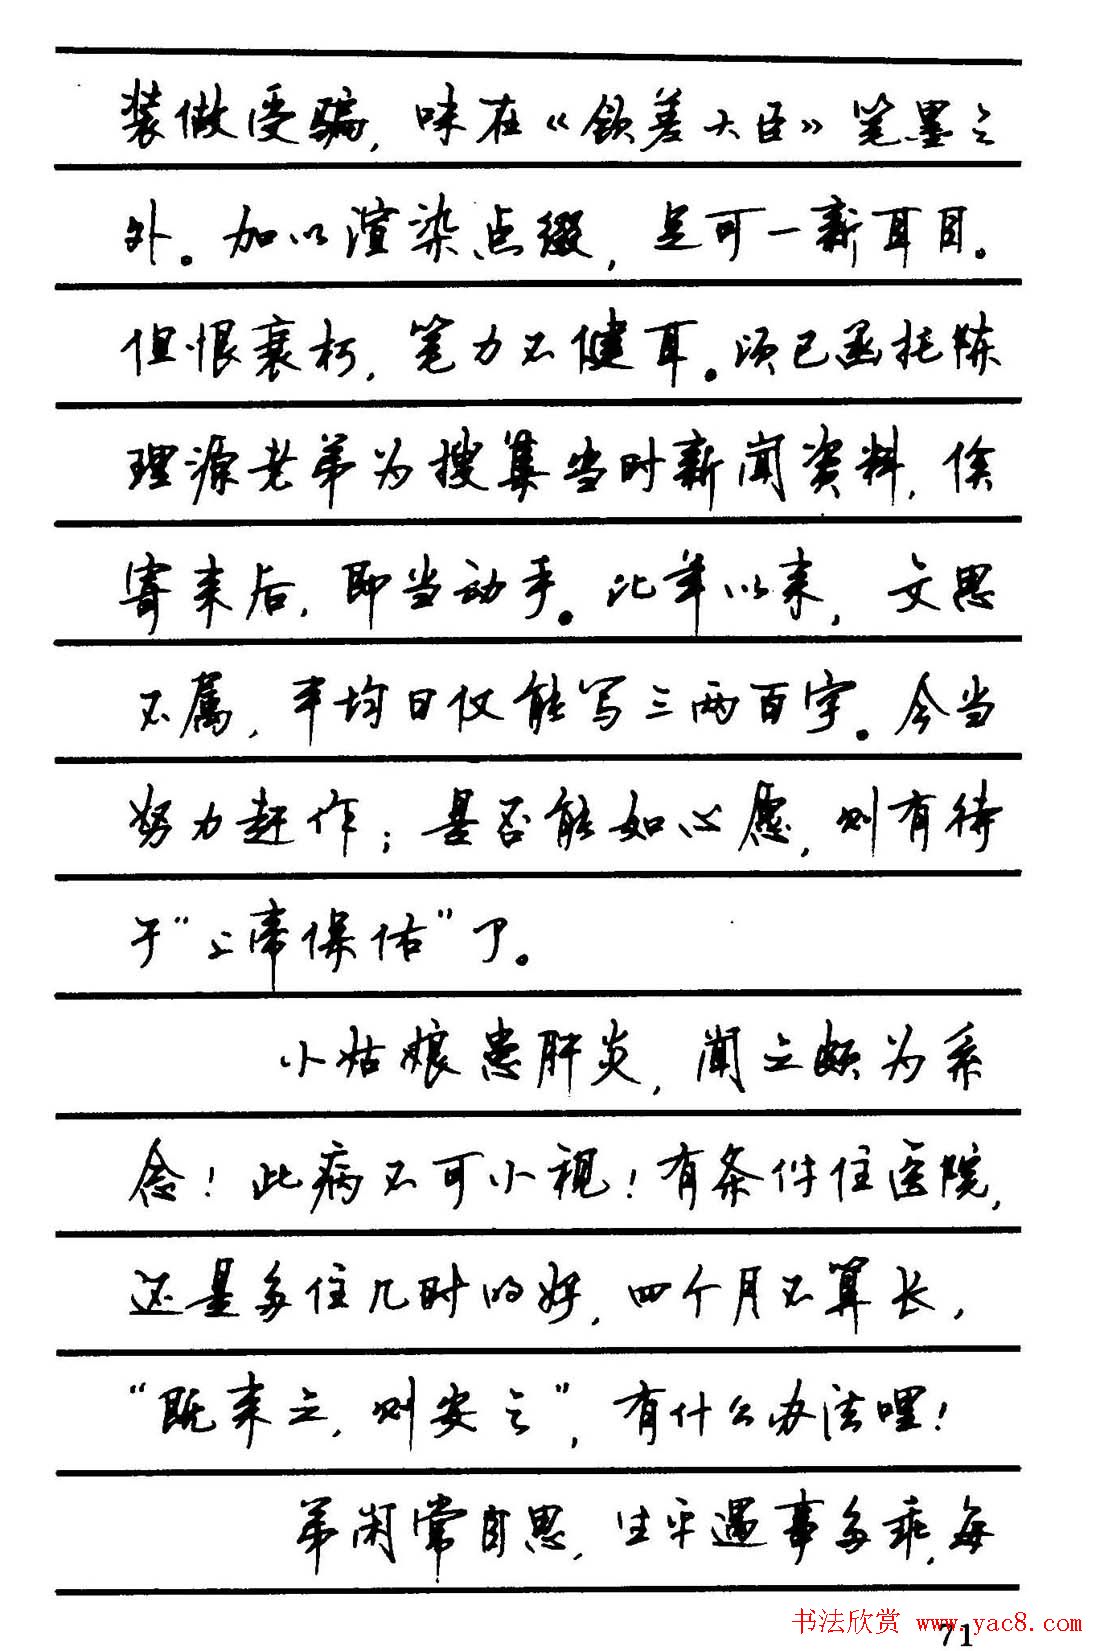 装做受骗，味在《钦差大臣》笔墨之
外。加以渲染点缀，足可一新耳目。
但恨衰朽，笔力不健耳。顷已函托陈
理源老弟为搜集当时新闻资料，俟
寄来后，即当动手。比年以来，文思
不属，平均日仅能写三两百字。今当
努力赶作；是否能如心愿，则有待
于“上帝保佑”了。
小姑娘患肝炎，闻之颇为系
念！此病不可小视！有条件住医院，
还是多住几时的好，四个月不算长，
“既来之，则安之”，有什么办法哩！
弟闲常自思，生平遇事多乖，每
书法欣赏 www.yac8.com
71